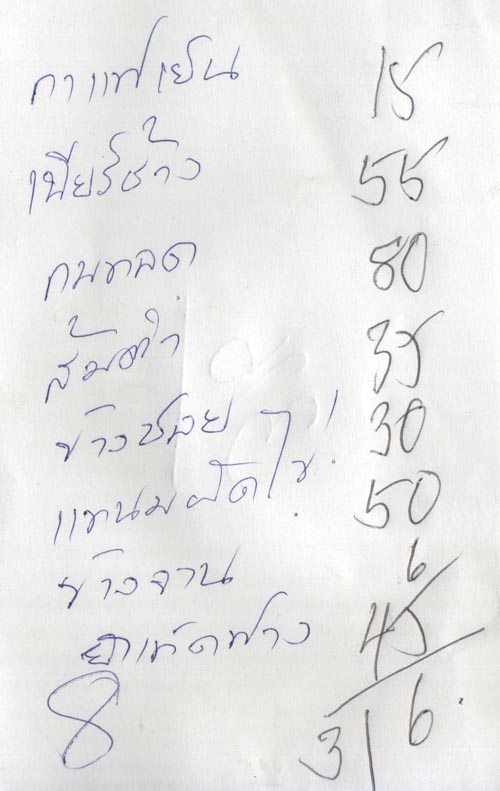 กาแฟเย็น 15
เบียร์ช้าง 55
กบทอด 80
ส้มตำ 35
ข้าวซอย 30
แหนมผัดไข่ 50
ข้าวจาน 6
ยำเห็ดฟาง 45
8 316